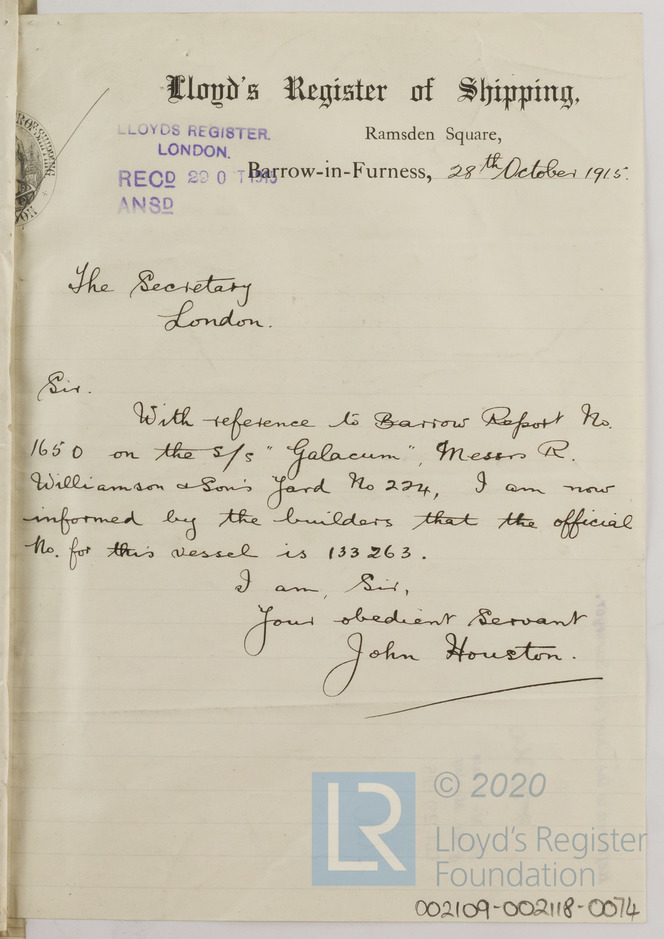 Lloyd's Register of Shipping,
Ramsden Square,
LLOYDS REGISTER.
LONDON.
RECD 29 OCT 1915
ANSD
Barrow-in-Furness, 28th October 1915.
The Secretary
London.
Sir.
With reference to Barrow Report No.
1650 on the S/S "Galacum", Messrs R.
Williamson & Son's Yard No 224, I am now
informed by the builders that the official
No. for this vessel is 133263.
I am, Sir,
Your obedient Servant
John Houston.
LR
© 2020
Lloyd's Register
Foundation
002109-002118-0074